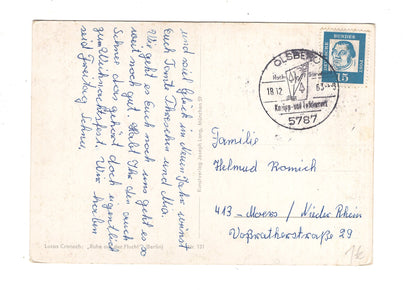 und viel Glück im neuen Jahr wünscht
Euch Tante Threschen und Mia.
Wie geht es Euch noch uns geht es so
weit noch gut. Habt Ihr den auch
Schnee das gehört doch eigentlich
zum Weihnachtsfest. Wir haben
seid Freitag Schnee,
Lucas Cranach: „Ruhe auf der Flucht" (Berlin)
Nr. 121
Kunstverlag Joseph
OLSBERG
18.12. 63
Kneipp- und
5787
DEUTSCHE
BUNDES
POST
15
Familie
Helmud Romich
413 - Moers / Nieder Rhein
Voßratherstraße 29
1€